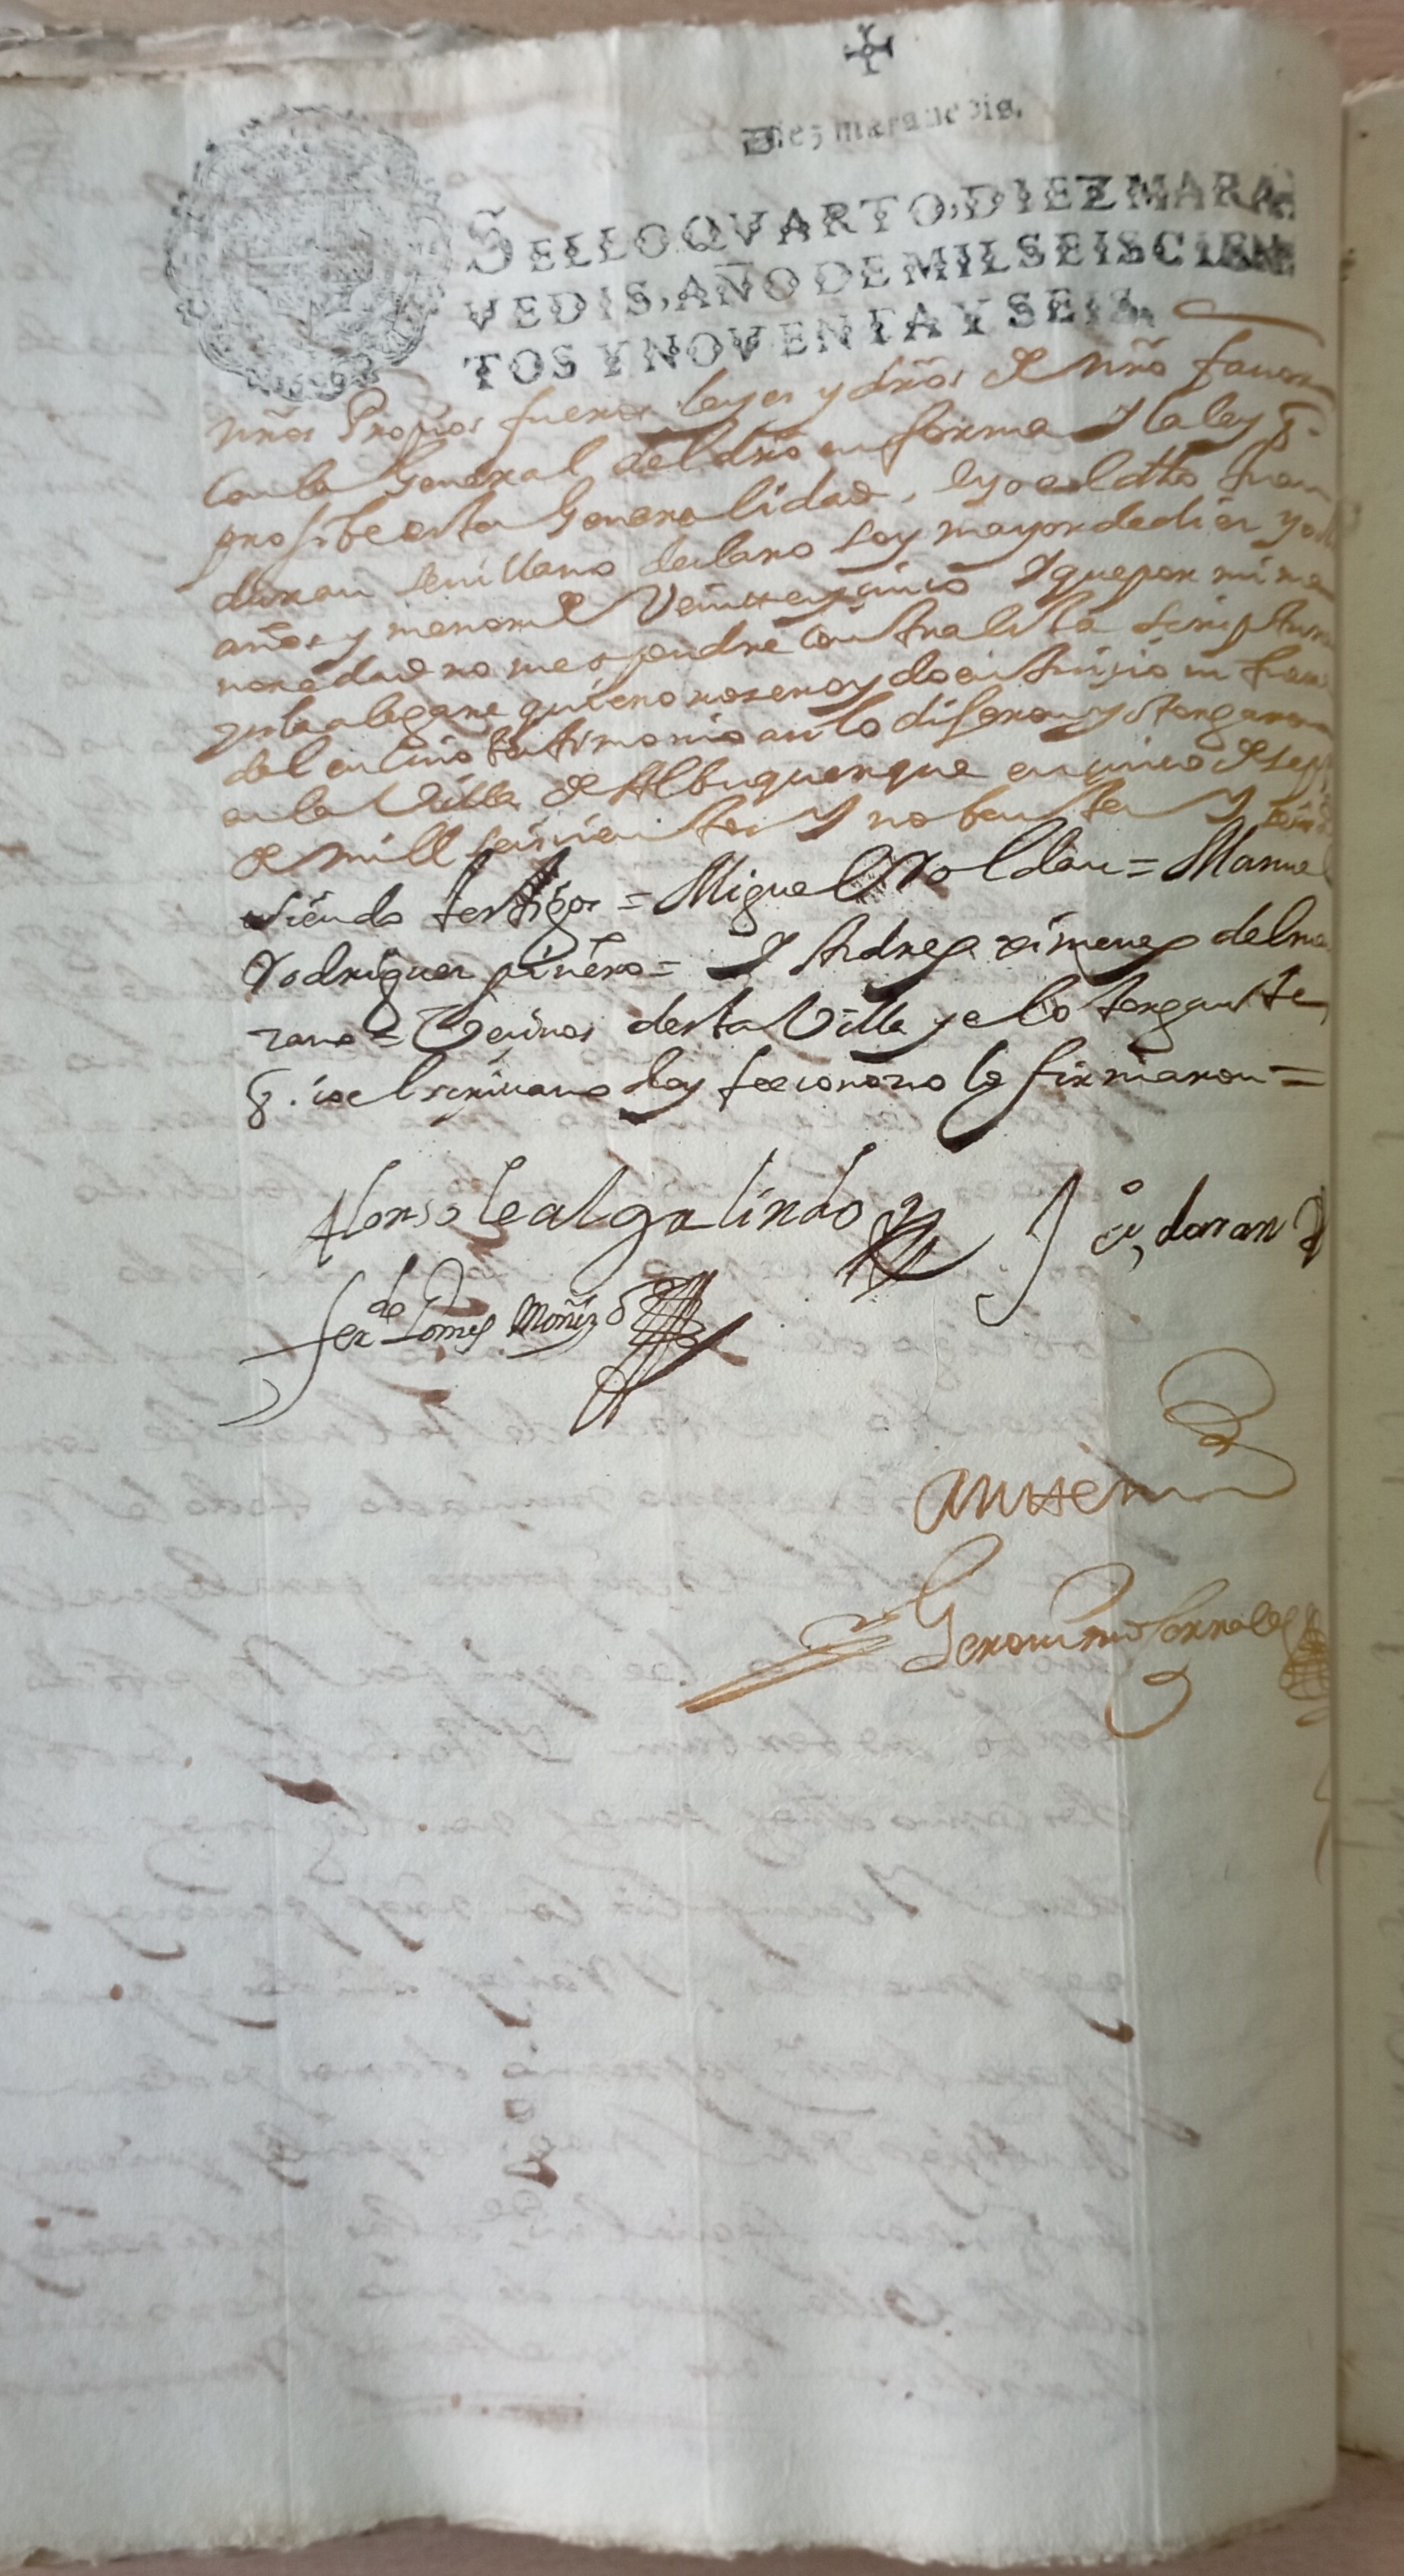 Diez marauedis.
SELLO QVARTO, DIEZ MARA
VEDIS, AÑO DE MIL SEISCIEN
TOS Y NOVENTA Y SEIS.
nrõs Propios fueros leyes y drõs de nrõ fauor
Con la General del drõ en forma Y la ley q̃
proSibe esta Generalidad, eyo el dho Juan
duran seuillano declaro soy mayor de dies y
años y menor de Veintteyçinco Y que por mi me
nor edad no me opondre Contra esta scriptura
alegare quiero no ser oydo en Juiçio ni fuera
del en Cuio testimonio an lo dijeron y otorgaron
en la Villa de Alburquerque en çinco de sep
de mill seisçientos Y nobentta Y seis
siendo testigos = Miguel Roldan = Manuel
Rodriguez piñero = Y Andres ximenes del
rano = Veçinos desta Villa y e los otorgantte
q̃. io el scriuano doy fee conozco lo firmaron =
Alonso leal galindo
Jũo duran
ferdo Gomes Moñiz
antte mi
Geronimo Corrales